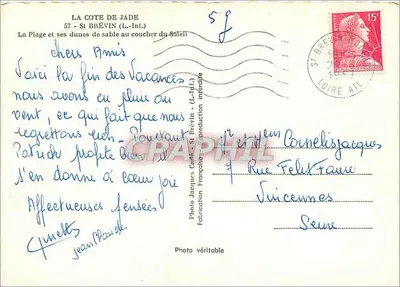 LA COTE DE JADE
57 - St BRÉVIN (L.-Inf.)
La Plage et ses dunes de sable au coucher du Soleil
59
15F
St BREVIN
LOIRE ATL.
chers Amis
Voici la fin des Vacances
nous avons eu pluie ou
vent, ce qui fait que nous
regrettons rien. Pourtant
Patrick profite bien et
s'en donne à cœur joie
Affectueuses Pensées
Ginette
Jean Claude
Photo Jacques - St Brévin - (L.-Inf.)
Fabrication Française - Reproduction interdite
CPAPHIL
Cornelis Jacques
7 Rue Felix Faure
Vincennes
Seine
Photo véritable